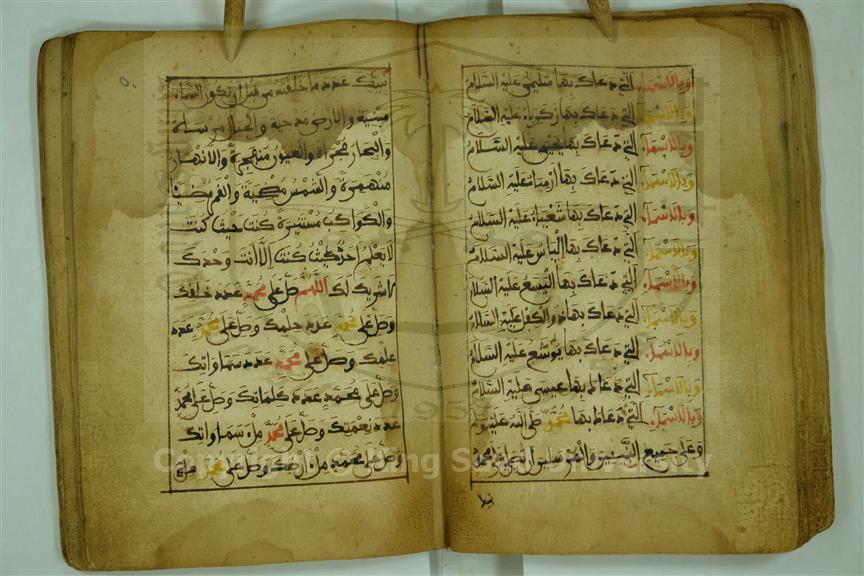 وبالاسماء التي دعاك بها سليمن عليه السلام
وبالاسماء التي دعاك بها زكرياء عليه السلام
وبالاسماء التي دعاك بها يحيى عليه السلام
وبالاسماء التي دعاك بها أرمياء عليه السلام
وبالاسماء التي دعاك بها شعياء عليه السلام
وبالاسماء التي دعاك بها إلياس عليه السلام
وبالاسماء التي دعاك بها اليسع عليه السلام
وبالاسماء التي دعاك بها ذو الكفل عليه السلام
وبالاسماء التي دعاك بها يوشع عليه السلام
وبالاسماء التي دعاك بها عيسى عليه السلام
وبالاسماء التي دعاك بها محمد صلى الله عليه وسلم
وعلى جميع النبيين والمرسلين ان تصلي على محمد
نبيك
نبيك عدد ما خلقته من قبل ان تكون السماء
مبنية والارض مدحية والجبال مرساة
والبحار مجراة والعيون منفجرة والانهار
منهمرة والشمس مضحية والقمر مضيئا
والكواكب مستنيرة كنت حيث كنت
لا يعلم احد حيث كنت إلا أنت وحدك
لا شريك لك اللهم صل على محمد عدد خلقك
وصل على محمد عدد حلمك وصل على محمد عدد
علمك وصل على محمد عدد سماواتك
وصل على محمد عدد كلماتك وصل على محمد
عدد نعمتك وصل على محمد ملء سماواتك
وصل على محمد ملء أرضك وصل على محمد ملء
Copyright © King Saud University